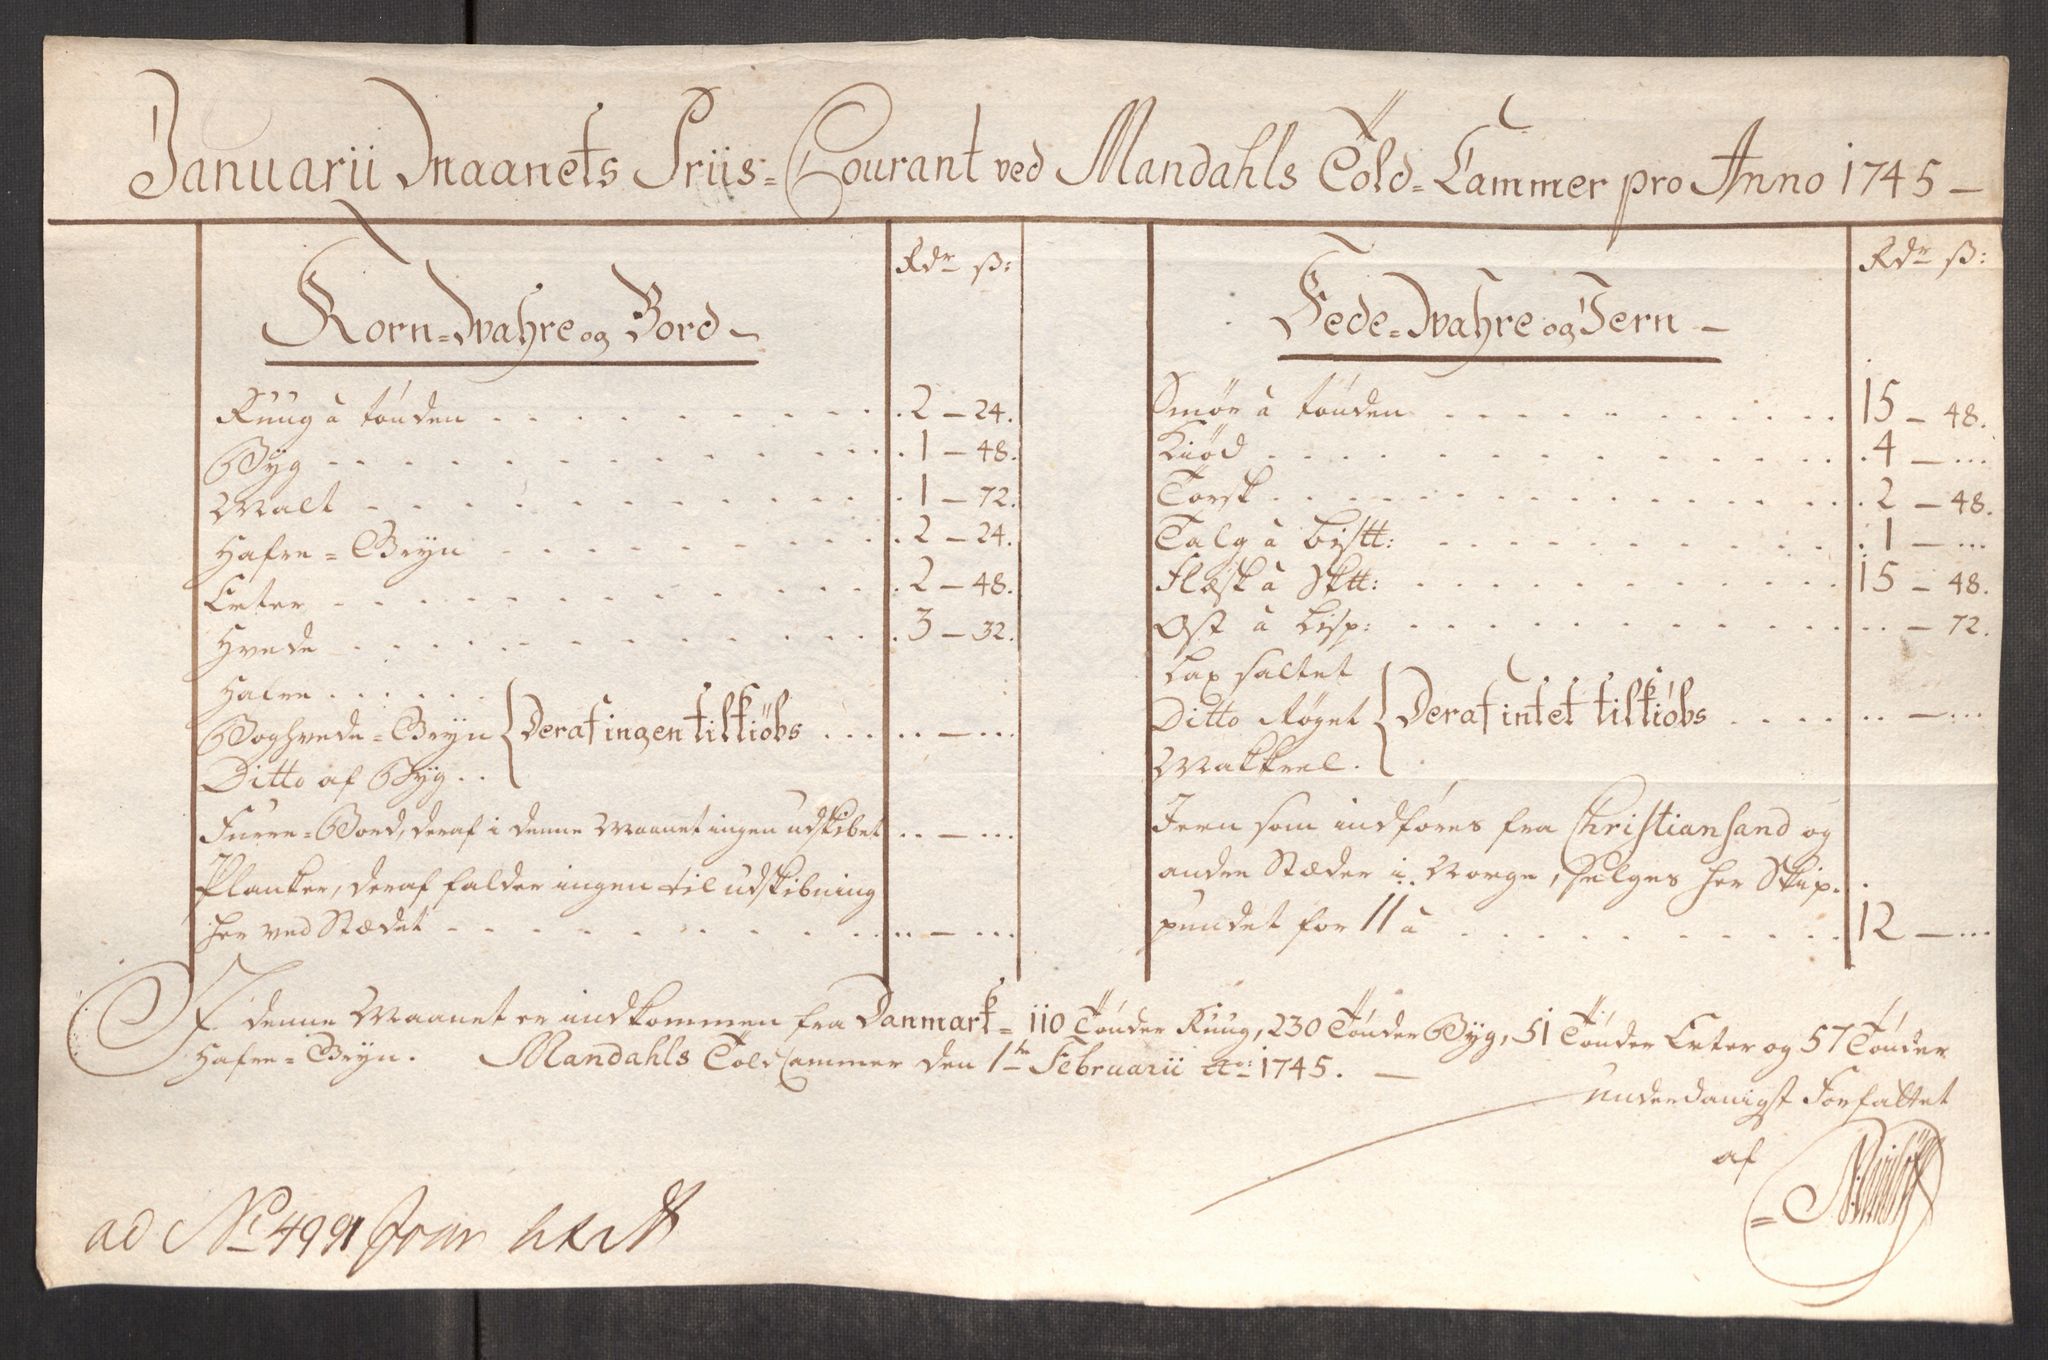 Januarii Maanets Priis-Courant ved Mandahls Told-Cammer pro Anno 1745 —
Rdr ß:
Korn-Wahre og Bord —
Ruug à tönden . . . 2 — 24.
Byg . . . 1 — 48.
Malt . . . 1 — 72.
Hafre-Gryn . . . 2 — 24.
Erter . . . 2 — 48.
Hvede . . . 3 — 32.
Hafre . . .
Boghvede-Gryn } Deraf ingen tilkiöbs . . . — . . .
Ditto af Byg . .
Furre-Bord, deraf i denne Maanet ingen udskibet . . — . . .
Planker, deraf falder ingen til udskibning
her ved Stædet . . . — . . .
Rdr ß:
Fede-Wahre og Jern —
Smör à tönden . . . 15 — 48.
Kiöd . . . 4 — . . .
Torsk . . . 2 — 48.
Talg à Listt: . . . 1 — . . .
Flæsk à Sktt: . . . 15 — 48.
Ost à Lisp: . . . — 72.
Lax saltet
Ditto Röget } Deraf intet tilkiöbs . . . — . . .
Makkrel .
Jern som indföres fra Christiansand og
andre Stæder i Norge, selges her Skip-
pundet for 11 à . . . 12 — . . .
I denne Maanet er indkommen fra Danmark = 110 Tönder Ruug, 230 Tönder Byg, 51 Tönder Erter og 57 Tönder
Hafre-Gryn. Mandahls Told Cammer den 1te Februarii 1745. —
underdanigst Forfattet
af
ad No 4991